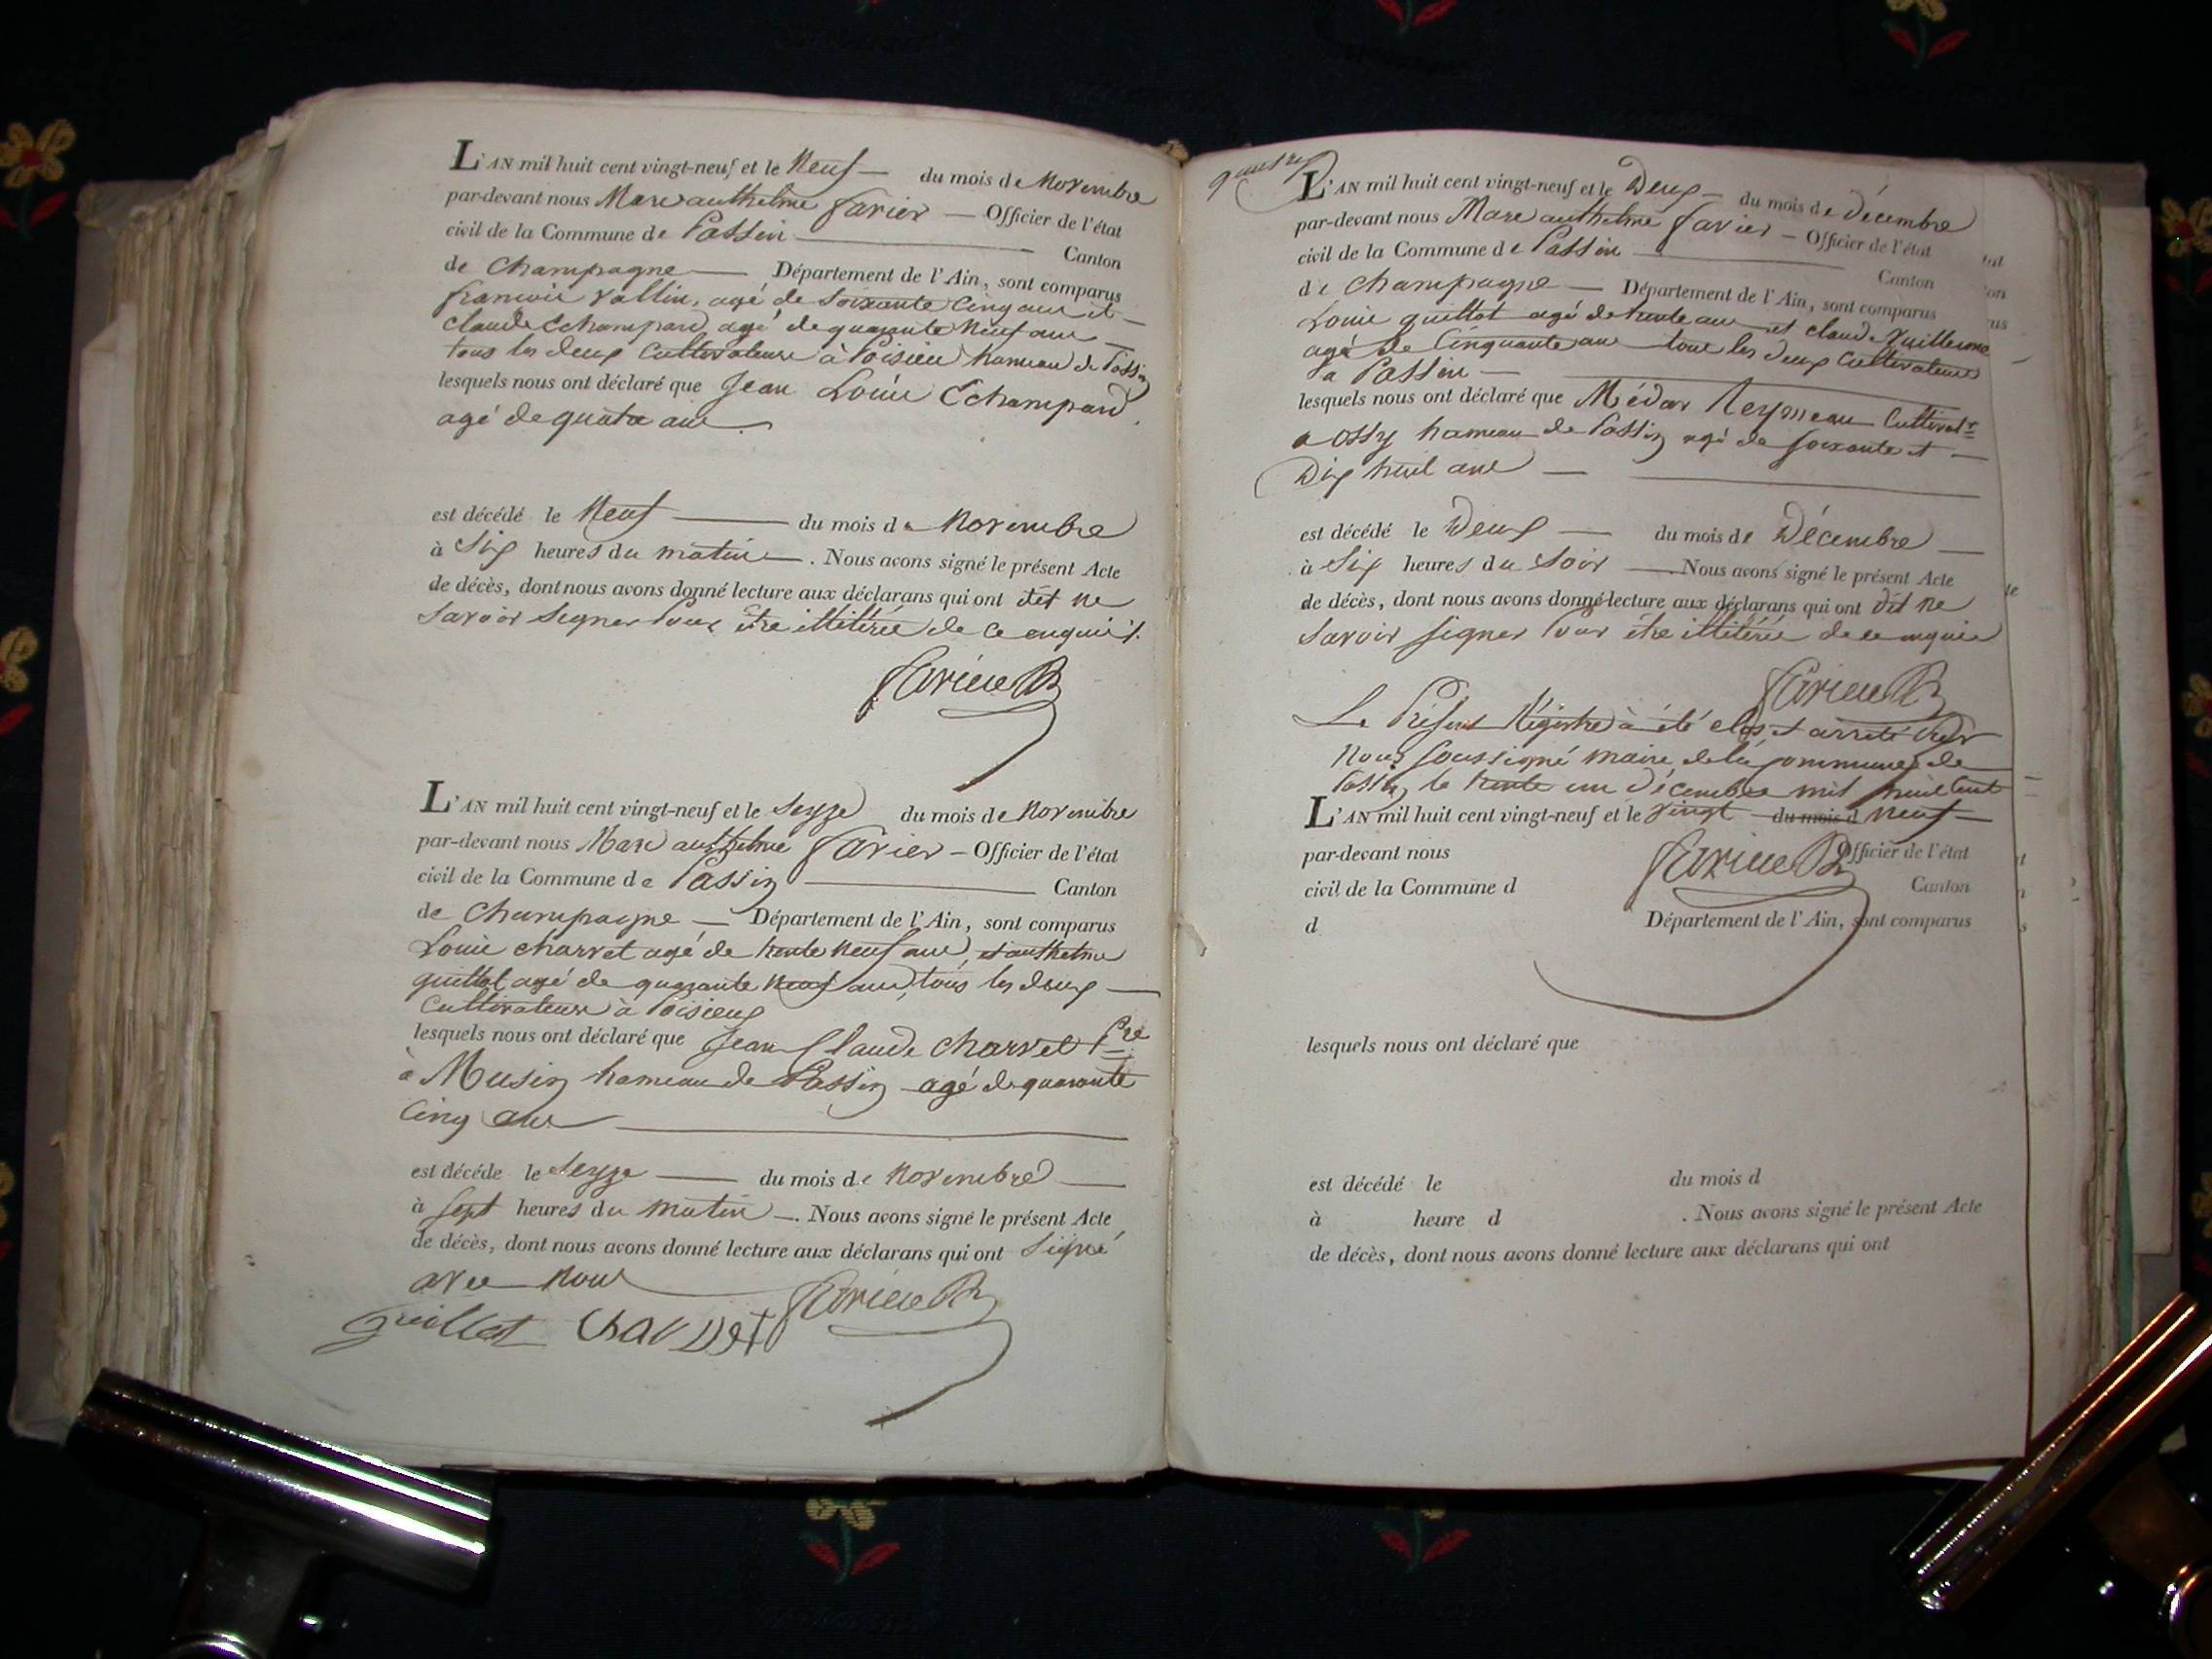 L'AN mil huit cent vingt-neuf et le Neuf — du mois de Novembre
par-devant nous Marc anthelme favier — Officier de l'état
civil de la Commune de Passin — Canton
de Champagne — Département de l'Ain, sont comparus
francois vallin, agé de soixante Cinq ans et —
claude Echampard, agé de quarante Neuf ans —
tous les deux Cultivateurs à Poisieu hameau de Passin
lesquels nous ont déclaré que Jean Louis Echampard
agé de quatre ans.
est décédé le Neuf — du mois de Novembre
à Six heures du matin —. Nous avons signé le présent Acte
de décès, dont nous avons donné lecture aux déclarans qui ont dit ne
savoir signer Pour être illitérée de ce enquis.
favier
L'AN mil huit cent vingt-neuf et le seyze du mois de Novembre
par-devant nous Marc anthelme favier — Officier de l'état
civil de la Commune de Passin — Canton
de Champagne — Département de l'Ain, sont comparus
Louis charvet agé de trente neuf ans, et anthelme
guillot agé de quarante neuf ans, tous les deux —
Cultivateurs à Poisieux
lesquels nous ont déclaré que Jean Claude charvet
à Musin hameau de Passin agé de quarante
Cinq ans —
est décédé le seyze — du mois de Novembre —
à sept heures du matin —. Nous avons signé le présent Acte
de décès, dont nous avons donné lecture aux déclarans qui ont signé
avec nous
guillot charvet favier
L'AN mil huit cent vingt-neuf et le Deux — du mois de Décembre
par-devant nous Marc anthelme favier — Officier de l'état
civil de la Commune de Passin — Canton
de Champagne — Département de l'Ain, sont comparus
Louis guillot agé de trente ans et claude Guillerme
agé de Cinquante ans tous les deux Cultivateurs
à Passin —
lesquels nous ont déclaré que Médar Reymeau Cultivatr
a ossy hameau de Passin agé de soixante et —
Dix huit ans —
est décédé le Deux — du mois de Décembre —
à Six heures du Soir —. Nous avons signé le présent Acte
de décès, dont nous avons donné lecture aux déclarans qui ont dit ne
savoir signer Pour être illitérée de ce enquis
favier
Le Présent Régistre à été clos et arreté Par
Nous soussigné maire de la commune de
Passin, le trente un Décembre mil huit Cent
L'AN mil huit cent vingt-neuf et le vingt — du mois d neuf —
par-devant nous favier Officier de l'état
civil de la Commune d Canton
d Département de l'Ain, sont comparus
lesquels nous ont déclaré que
est décédé le du mois d
à heure d . Nous avons signé le présent Acte
de décès, dont nous avons donné lecture aux déclarans qui ont